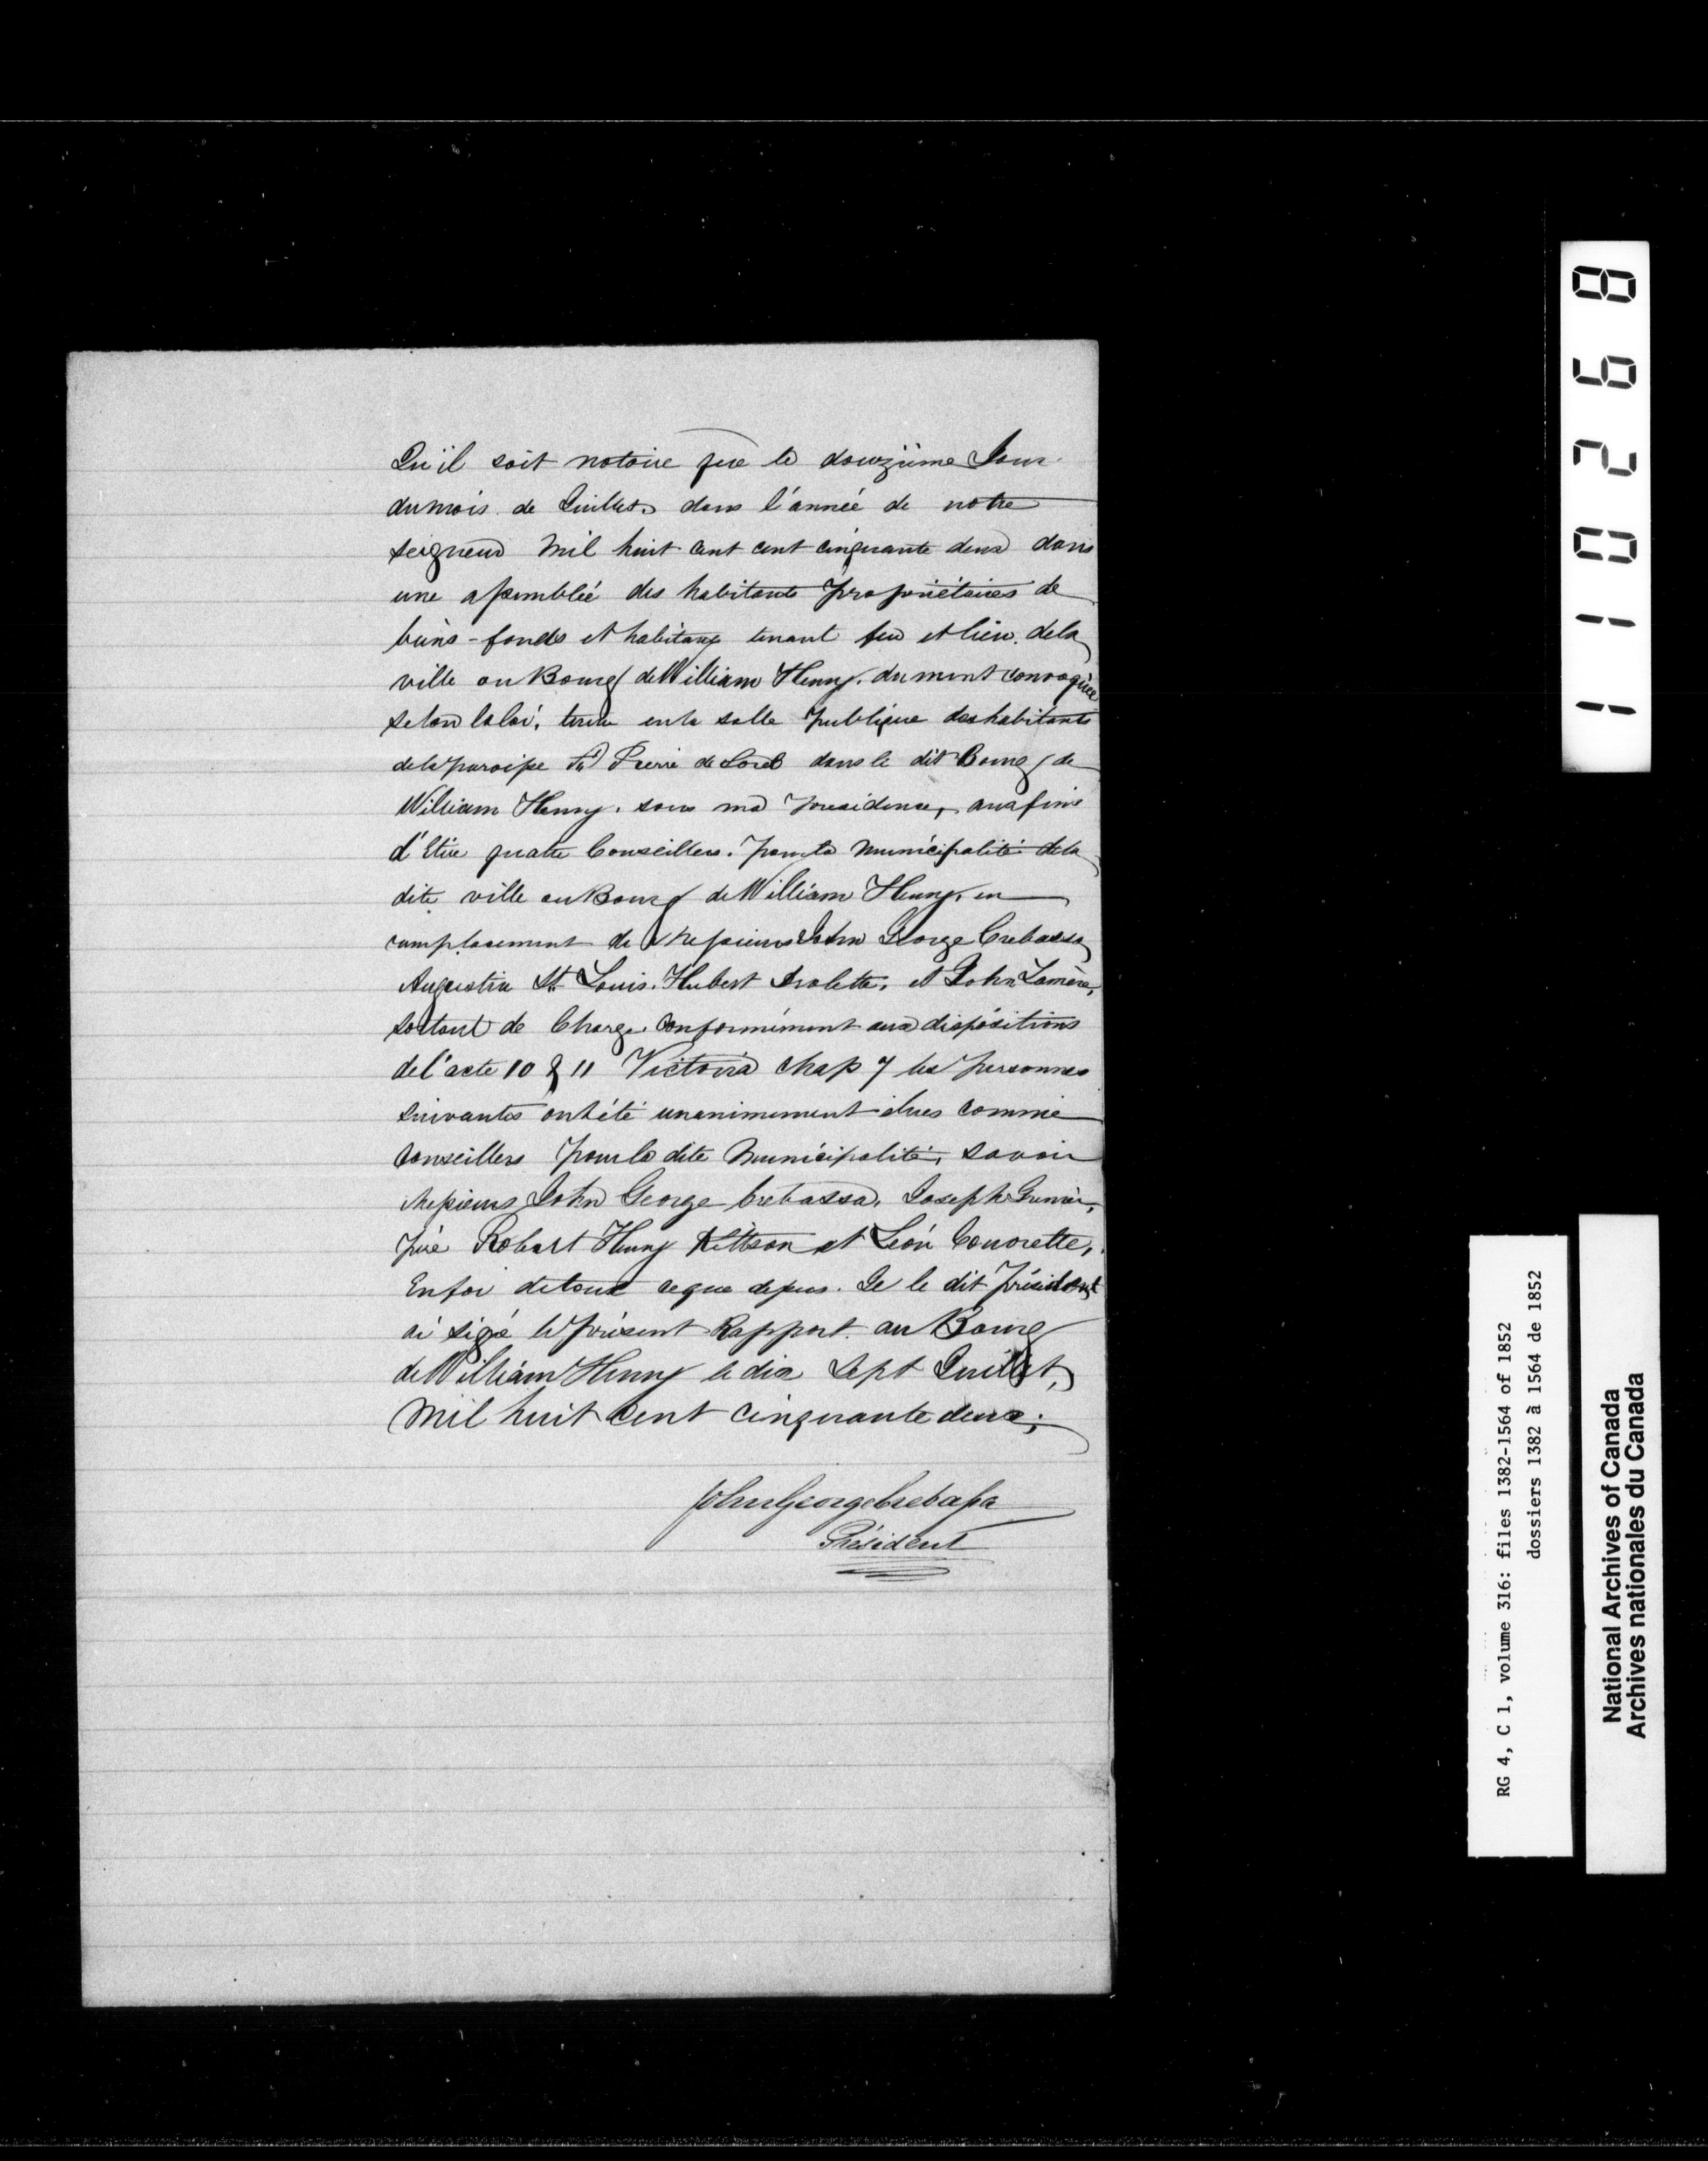 Qu'il soit notoire que le douzième Jour
du mois de Juillet, dans l'année de notre
seigneur Mil huit cent cent cinquante deux dans
une assemblée des habitants propriétaires de
biens-fonds et habitans tenant feu et lieu de la
ville ou Bourg de William Henry. dument convoquée
selon la loi, tenue en la salle publique des habitants
de la paroisse St Pierre de Sorel dans le dit Bourg de
William Henry. sous ma présidence, aux fins
d'Elire quatre Conseillers. pour la Municipalité de la
dite ville ou Bourg de William Henry, en
remplacement de Messieurs John George Crebassa
Augustin St Louis. Hubert et John
sortant de Charge conformément aux dispositions
de l'acte 10 & 11 Victoria chap 7 les personnes
suivantes ont été unanimement élues comme
Conseillers pour la dite Municipalité, savoir
Messieurs John George Crebassa, Joseph
père Robert Henry Kittson et Léon
En foi de tout ce que dessus. Je le dit président
ai signé le présent Rapport au Bourg
de William Henry le dix Sept Juillet,
Mil huit cent cinquante deux;
John George Crebassa
Président
110268
RG 4, C 1, volume 316: files 1382-1564 of 1852
dossiers 1382 à 1564 de 1852
National Archives of Canada
Archives nationales du Canada